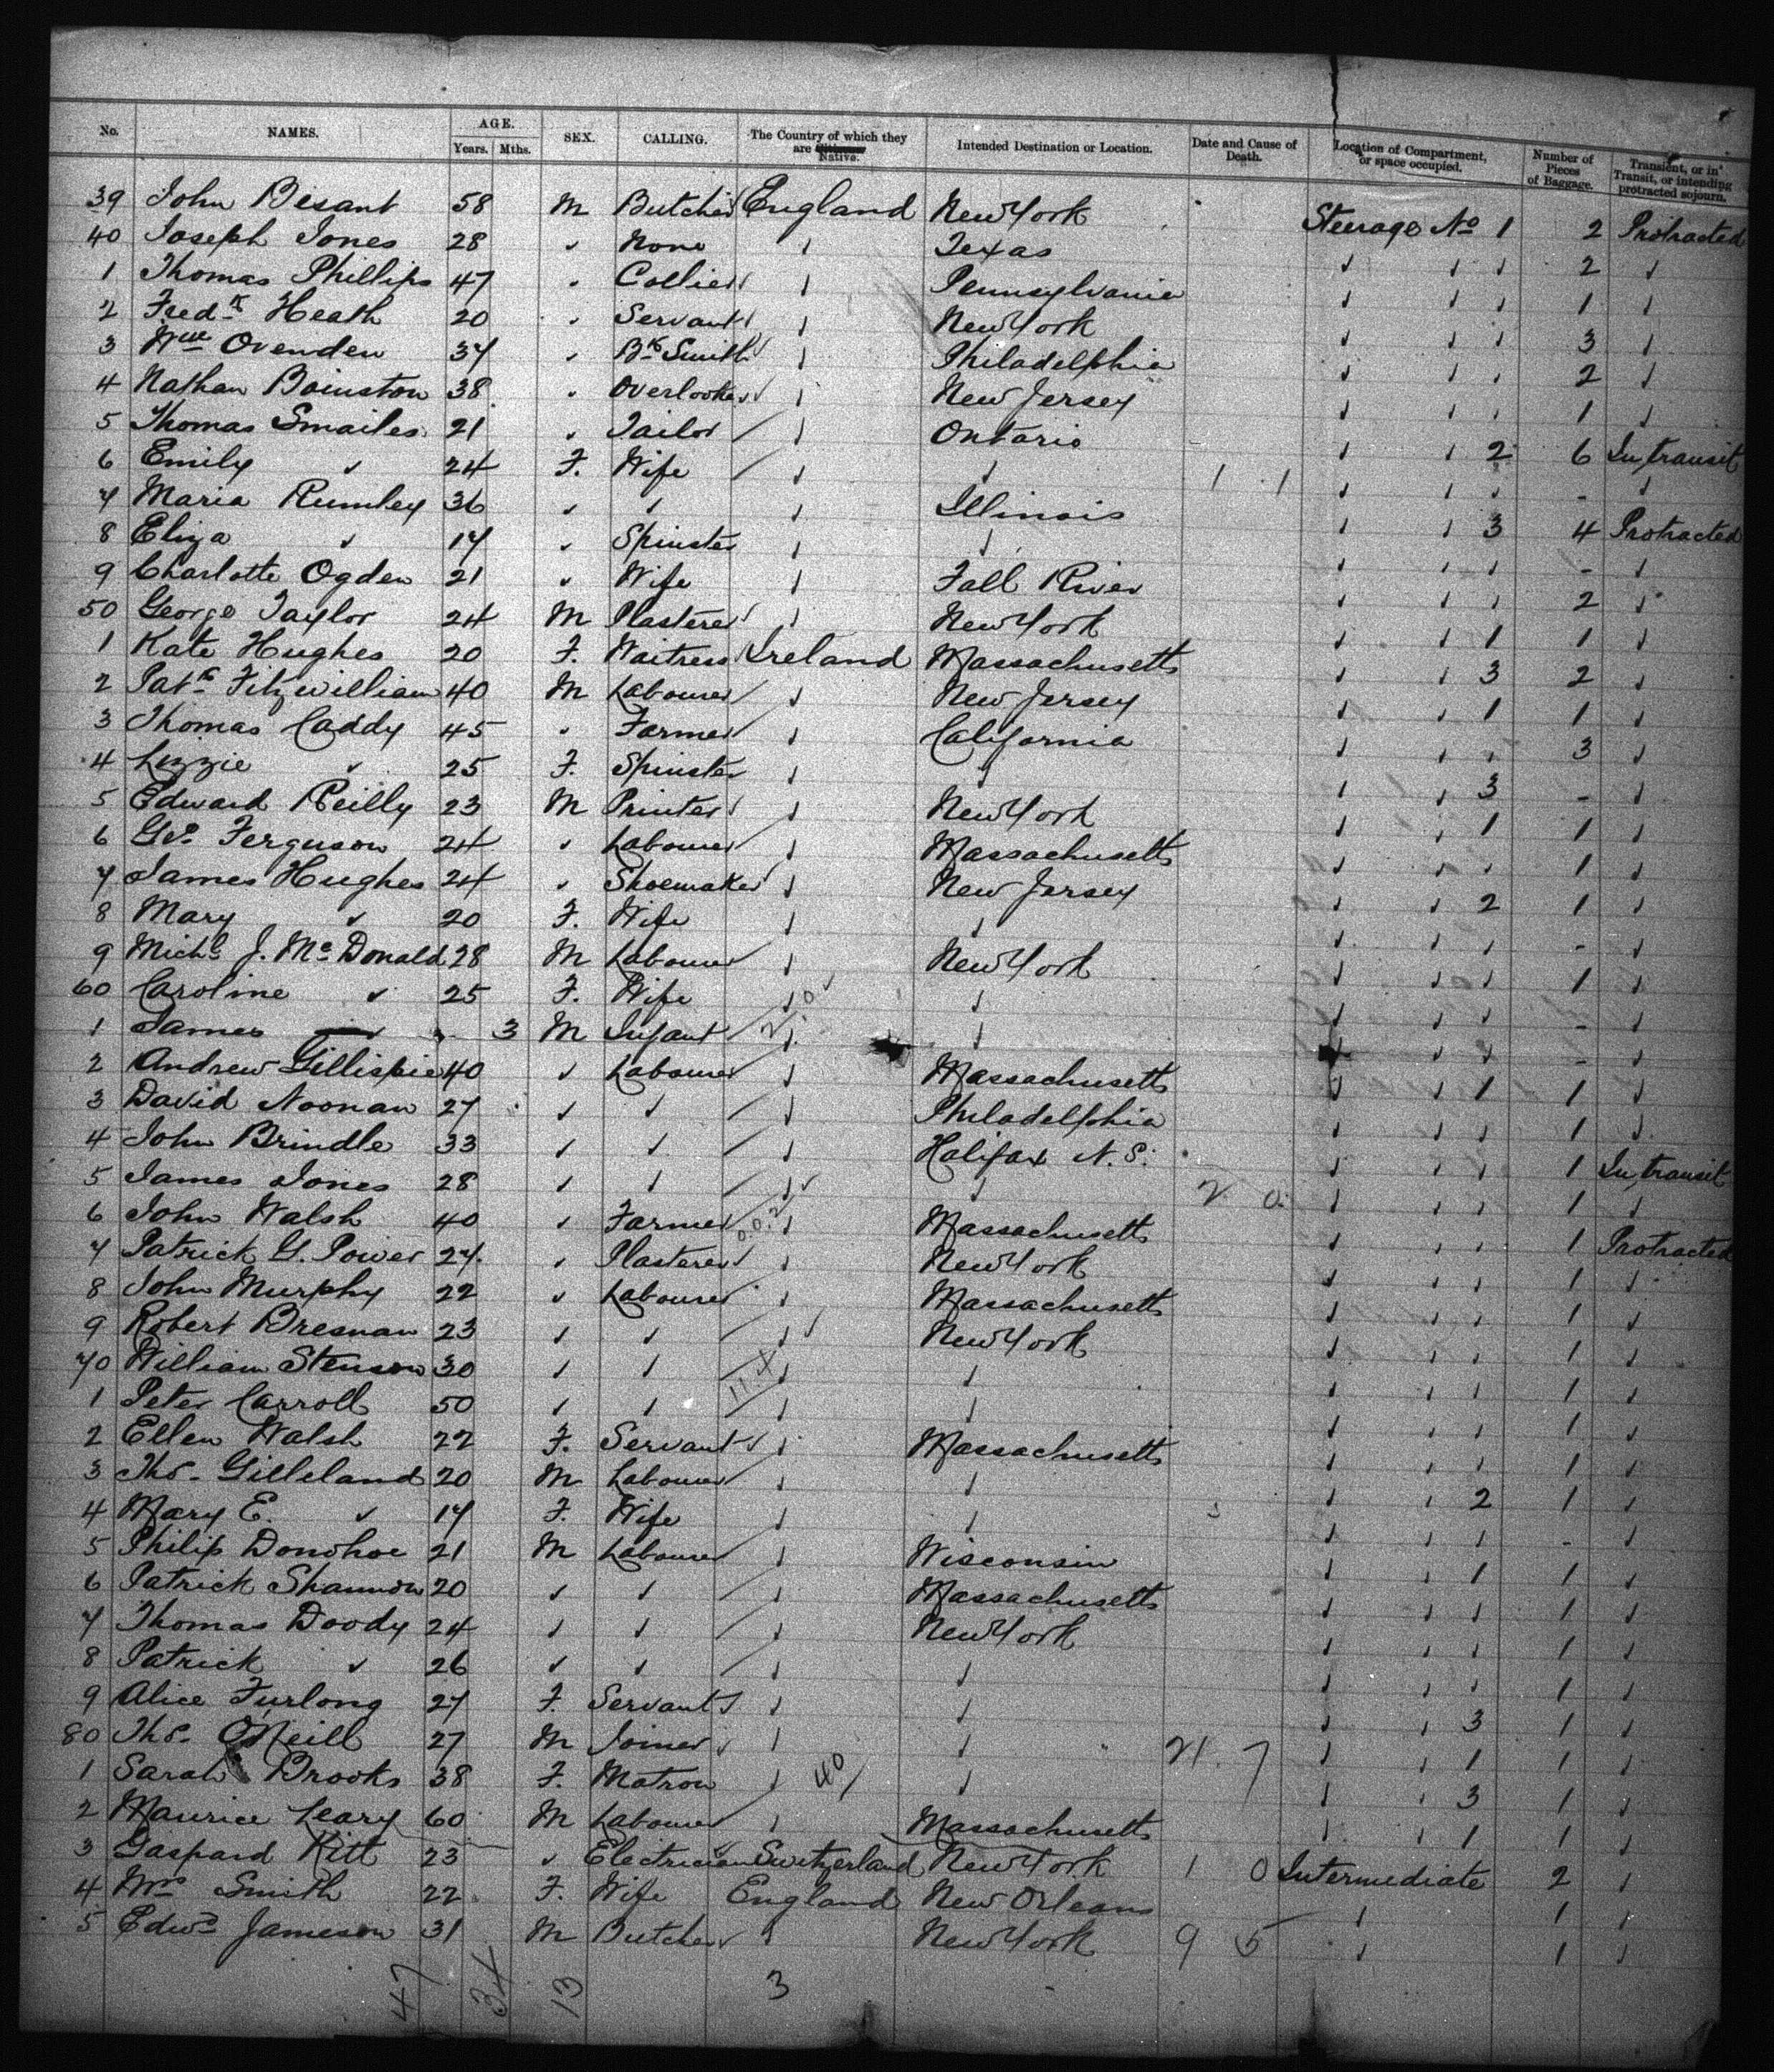 No. NAMES. AGE. Years. Mths. SEX. CALLING. The Country of which they are Native. Intended Destination or Location. Date and Cause of Death. Location of Compartment, or space occupied. Number of Pieces of Baggage. Transient, or in Transit, or intending protracted sojourn.
39 John Besant 58 M Butcher England New York Steerage No 1 2 Protracted
40 Joseph Jones 28 " None " Texas " " " 2 "
1 Thomas Phillips 47 " Collier " Pennsylvania " " " 1 "
2 Fredk Heath 20 " Servant " New York " " " 3 "
3 Wm Ovenden 37 " Bk Smith " Philadelphia " " " 2 "
4 Nathan Bainston 38 " Overlooker " New Jersey " " " 1 "
5 Thomas Smailes 21 " Tailor " Ontario " " 2 6 In transit
6 Emily " 24 F. Wife " " 1 1 " " " - "
7 Maria Rumley 36 " " " Illinois " " 3 4 Protracted
8 Eliza " 17 " Spinster " " " " " - "
9 Charlotte Ogden 21 " Wife " Fall River " " " 2 "
50 George Taylor 24 M Plasterer " New York " " 1 1 "
1 Kate Hughes 20 F. Waitress Ireland Massachusetts " " 3 2 "
2 Patk Fitzwilliam 40 M Labourer " New Jersey " " 1 1 "
3 Thomas Caddy 45 " Farmer " California " " " 3 "
4 Lizzie " 25 F. Spinster " " " " 3 - "
5 Edward Reilly 23 M Printer " New York " " 1 1 "
6 Geo. Ferguson 24 " Labourer " Massachusetts " " " 1 "
7 James Hughes 24 " Shoemaker " New Jersey " " 2 1 "
8 Mary " 20 F. Wife " " " " " - "
9 Michl J. McDonald 28 M Labourer " New York " " " 1 "
60 Caroline " 25 F. Wife " " " " " - "
1 James " 3 M Infant " " " " " - "
2 Andrew Gillispie 40 " Labourer " Massachusetts " " 1 1 "
3 David Noonan 27 " " " Philadelphia " " " 1 "
4 John Brindle 33 " " " Halifax N.S. " " " 1 In transit
5 James Jones 28 " " " " 2 0 " " " 1 "
6 John Walsh 40 " Farmer " Massachusetts " " " 1 Protracted
7 Patrick G. Power 27 " Plasterer " New York " " " 1 "
8 John Murphy 22 " Labourer " Massachusetts " " " 1 "
9 Robert Bresnan 23 " " " New York " " " 1 "
70 William Stenson 30 " " " " " " " 1 "
1 Peter Carroll 50 " " " " " " " 1 "
2 Ellen Walsh 22 F. Servant " Massachusetts " " " 1 "
3 Thos. Gilleland 20 M Labourer " " " " 2 1 "
4 Mary E. " 17 F. Wife " " " " " - "
5 Philip Donohoe 21 M Labourer " Wisconsin " " 1 1 "
6 Patrick Shannon 20 " " " Massachusetts " " " 1 "
7 Thomas Doody 24 " " " New York " " " 1 "
8 Patrick " 26 " " " " " " " 1 "
9 Alice Furlong 27 F. Servant " " " " 3 1 "
80 Thos. O'Neill 27 M Joiner " " 21. 7 " " 1 1 "
1 Sarah Brooks 38 F. Matron " 40 " " " 3 1 "
2 Maurice Leary 60 M Labourer " Massachusetts " " 1 1 "
3 Gaspard Kitt 23 " Electrician Switzerland New York 1 0 Intermediate 2 "
4 Mrs Smith 22 F. Wife England New Orleans " 1 "
5 Edwd Jameson 31 M Butcher " New York 9 5 " 1 "
47 34 13 3